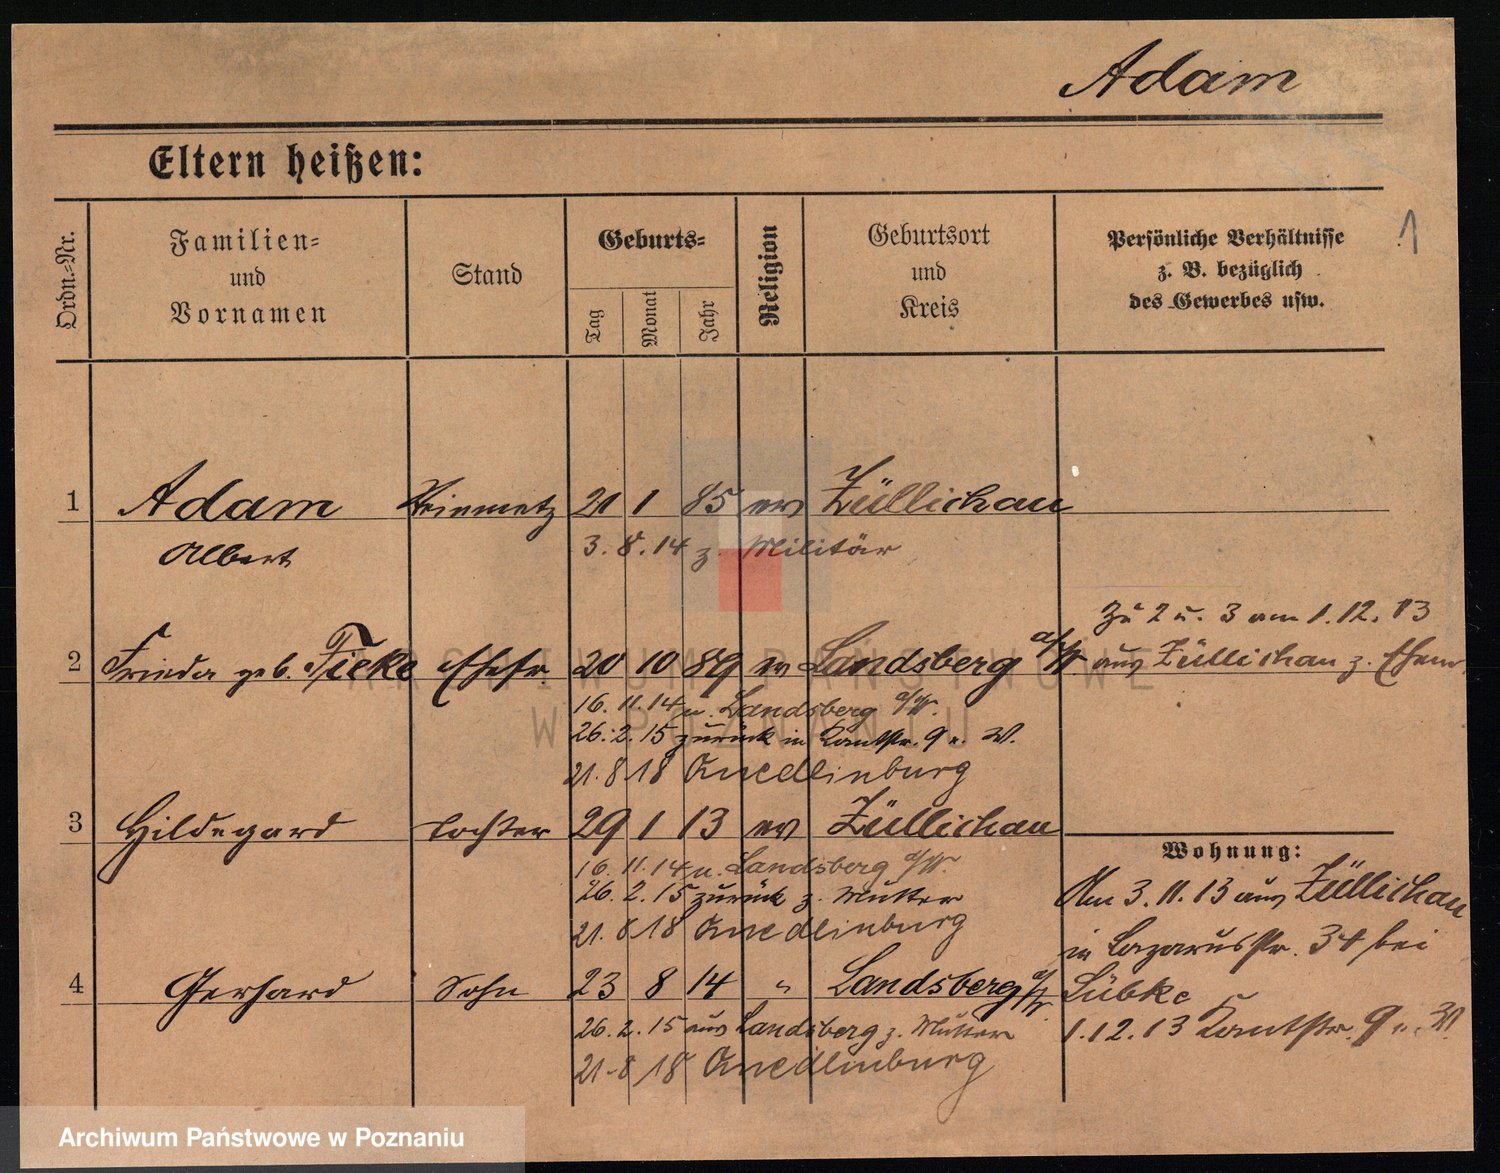 Adam
Eltern heißen:
1
Ordn.-Nr.
Familien-
und
Vornamen
Stand
Geburts-
Tag
Monat
Jahr
Religion
Geburtsort
und
Kreis
Persönliche Verhältnisse
z. B. bezüglich
des Gewerbes usw.
1 Adam 21 1 85 ev Züllichau
Albert 3. 8. 14 z. Militär
Zu 2 u. 3 am 1. 12. 13
2 Frieda geb. Ticke Ehefr 20 10 89 ev Landsberg a/W. aus Züllichau z. Ehem.
16. 11. 14 n. Landsberg a/W.
26. 2. 15 zurück in Kantstr. 9 n. W.
21. 8 18 Quedlinburg
3 Hildegard Tochter 29 1 13 ev Züllichau
16. 11. 14 n. Landsberg a/W.
26. 2. 15 zurück z. Mutter
21. 8 18 Quedlinburg
4 Gerhard Sohn 23 8 14 " Landsberg a/W.
26. 2. 15 aus Landsberg z. Mutter
21. 8 18 Quedlinburg
Wohnung:
Am 3. 11. 13 aus Züllichau
in Lazarusstr. 34 bei
Lübke
1. 12. 13 Kantstr. 9 n. W.
ARCHIWUM PAŃSTWOWE
W POZNANIU
Archiwum Państwowe w Poznaniu